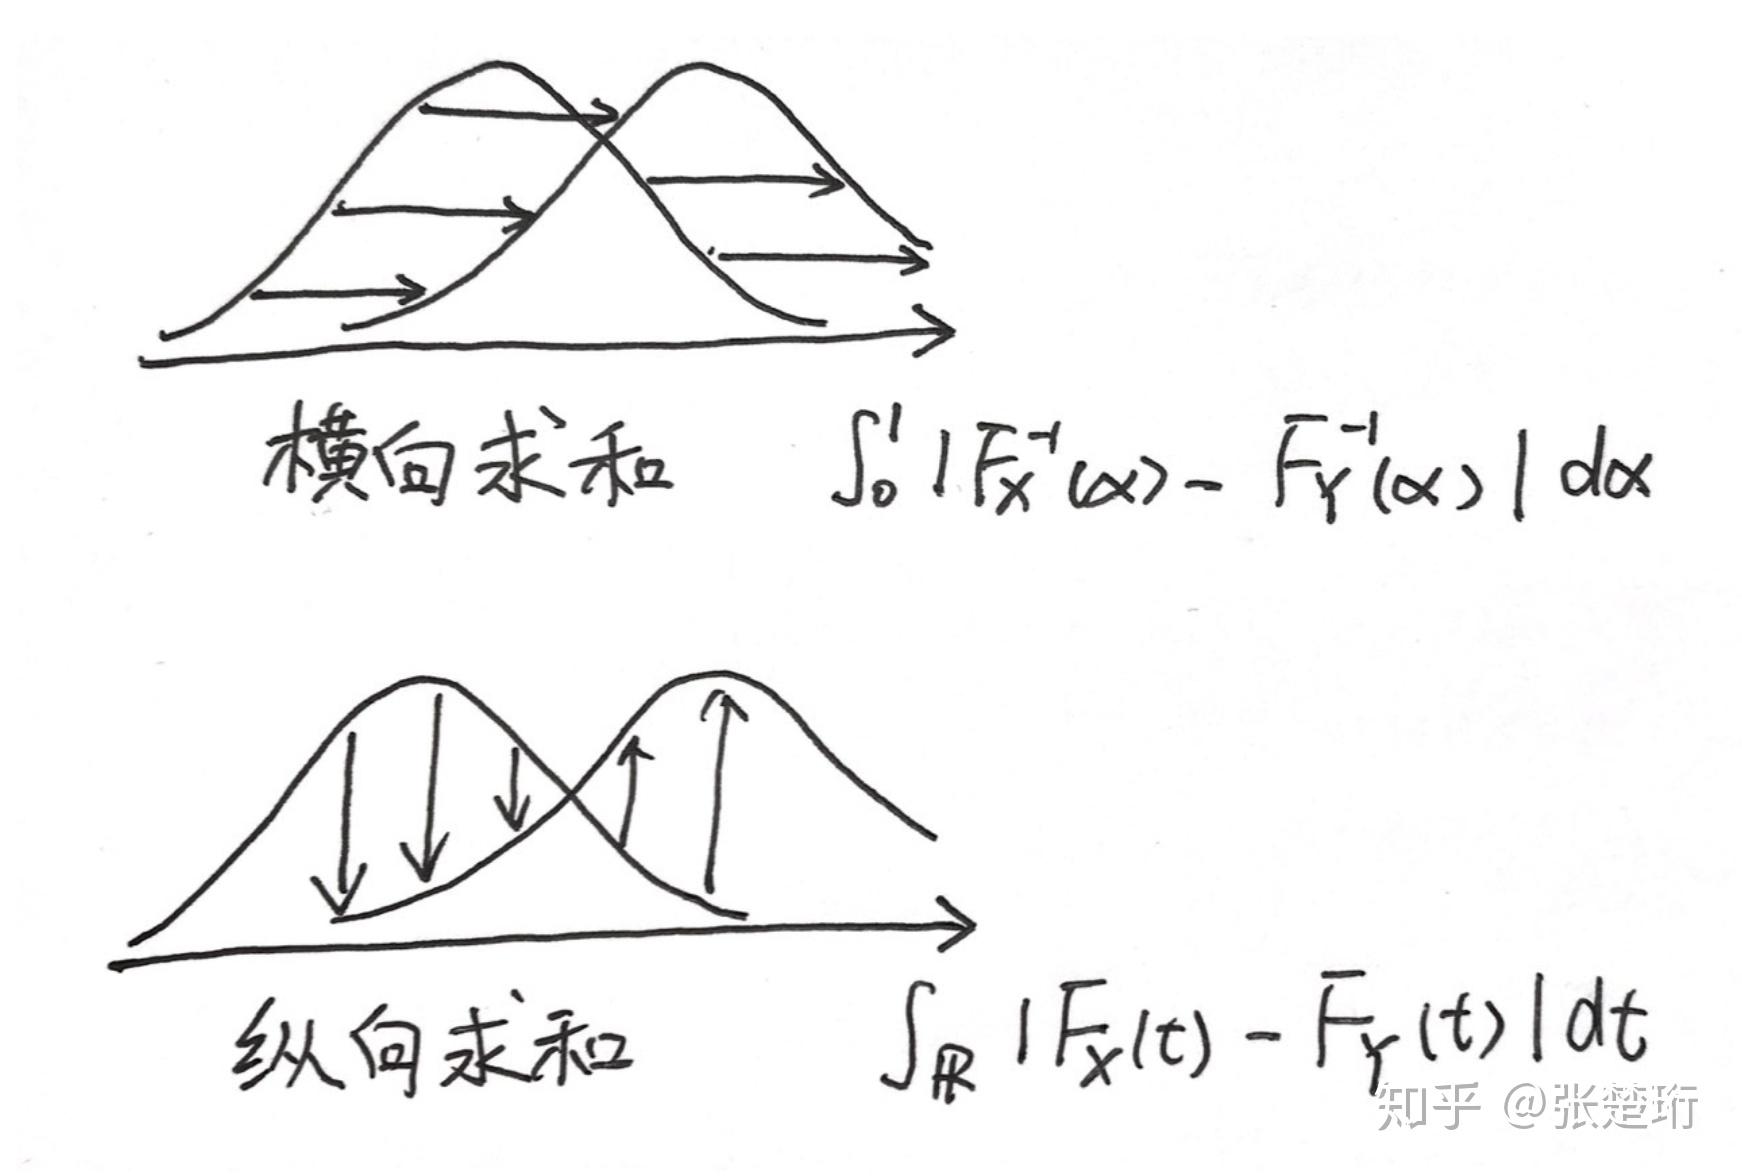 横向求和 ∫₀¹ | F_X⁻¹(α) - F_Y⁻¹(α) | dα
纵向求和 ∫_ℝ | F_X(t) - F_Y(t) | dt
知乎 @张楚珩